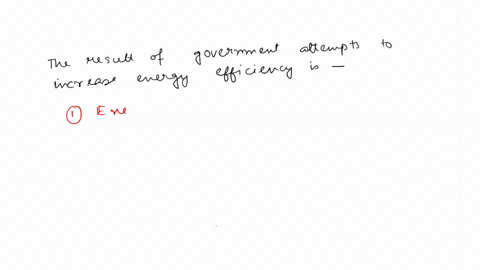 The result of government attempts to
increase energy efficiency is —
① Ene